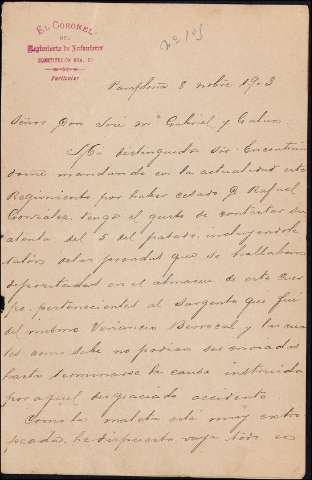 EL CORONEL
DEL
Regimiento de Infantería
CONSTITUCIÓN NÚM. 29
Particular
Nº 105
Pamplona 8 nobre 1903
Señor Don José Mª Gabriel y Galan
Mi distinguido Sor: Encontran
dome mandando en la actualidad este
Regimiento por haber cesado D Rafael
Gonzalez, tengo el gusto de contestar su
atenta del 5 del pasado, incluyendole
talón de las prendas que se hallaban
depositadas en el almacen de este Cuer
po, pertenecientes al Sargento que fué
del mismo Venancio Berrocal y las cua
les como sabe no podian ser enviadas
hasta terminarse la causa instruida
por aquel desgraciado accidente
Como la maleta está muy estro
peada, he dispuesto vaya todo en